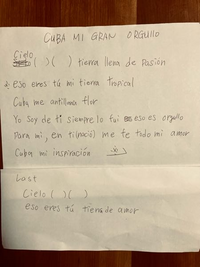 CUBA MI GRAN ORGULLO
Cielo
( ) ( ) tierra llena de Pasión
eso eres tú mi tierra tropical
Cuba me antillana flor
Yo soy de ti siempre lo fui eso es orgullo
Para mi, en ti (nació) me te todo mi amor
Cuba mi inspiración
Last
Cielo ( ) ( )
eso eres tú tierra de amor